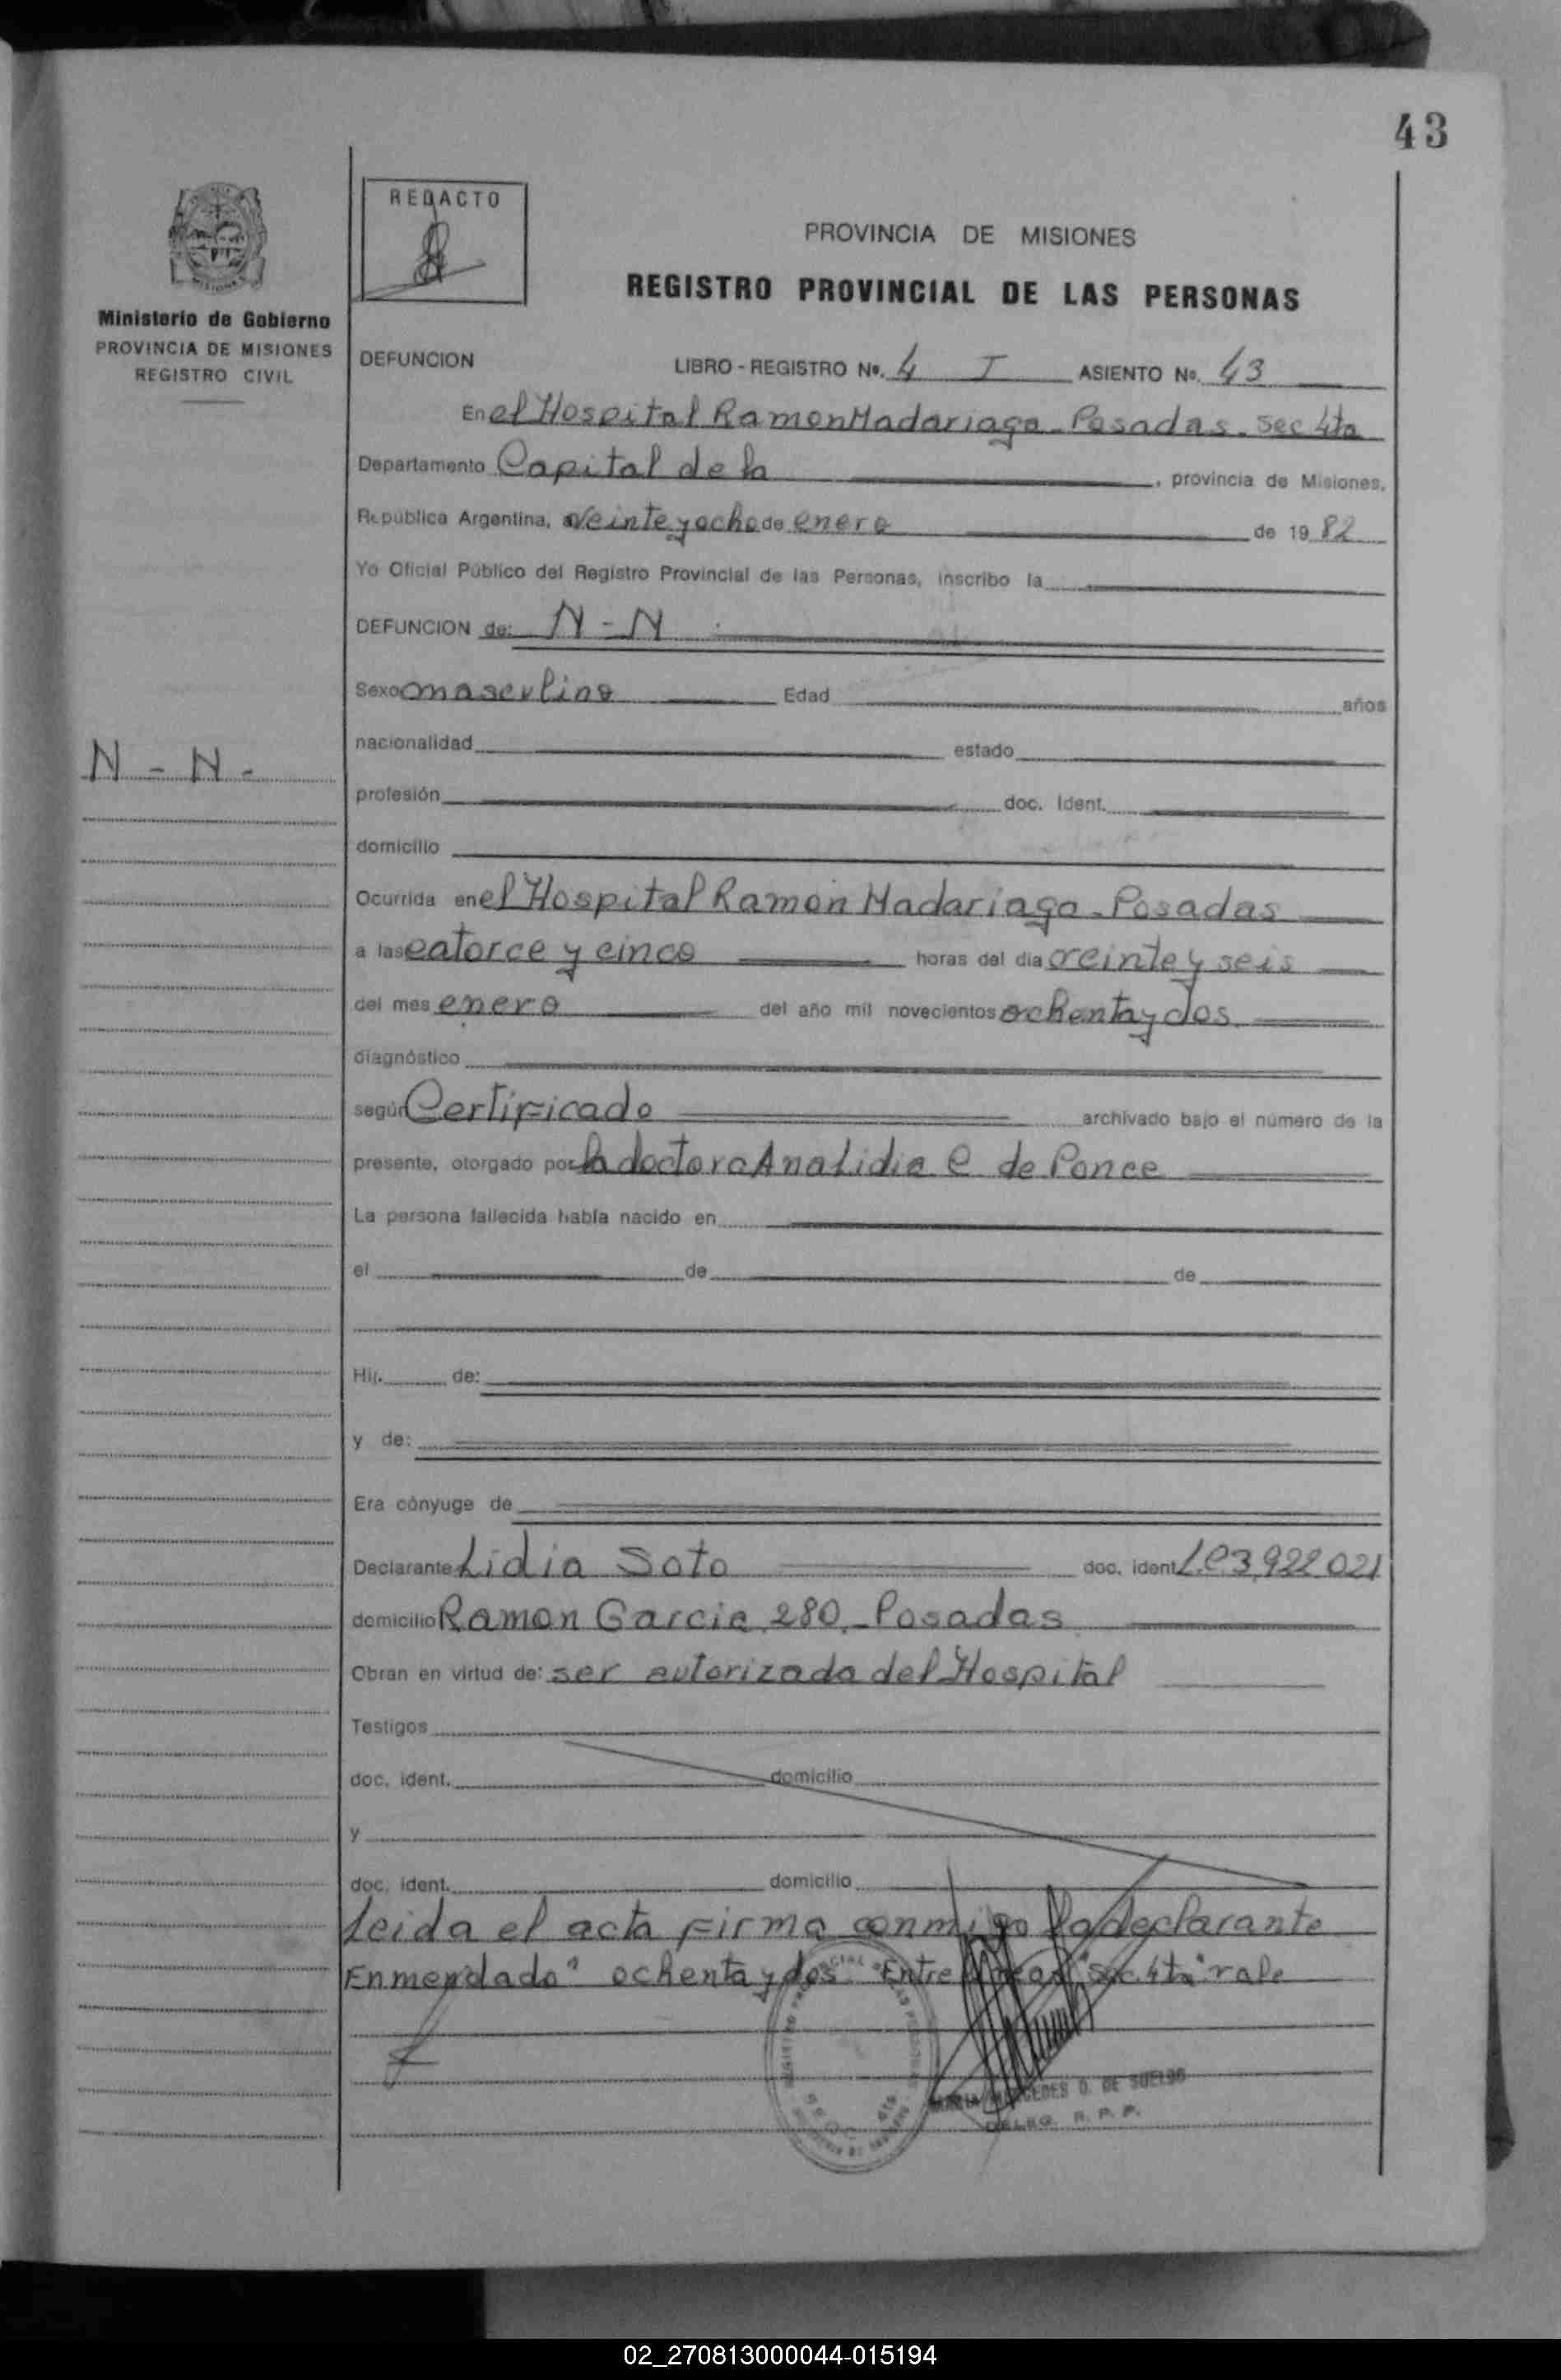 43
REDACTO
PROVINCIA DE MISIONES
REGISTRO PROVINCIAL DE LAS PERSONAS
Ministerio de Gobierno
PROVINCIA DE MISIONES
REGISTRO CIVIL
DEFUNCION LIBRO - REGISTRO Nº. 4 I ASIENTO Nº. 43
En el Hospital Ramon Madariaga - Posadas - sec 4ta
Departamento Capital de la , provincia de Misiones,
República Argentina, a veinte y ocho de enero de 19 82
Yo Oficial Público del Registro Provincial de las Personas, inscribo la
DEFUNCION de: N - N
Sexo masculino Edad años
nacionalidad estado
N - N -
profesión doc. Ident.
domicilio
Ocurrida en el Hospital Ramon Madariaga - Posadas
a las catorce y cinco horas del día veinte y seis
del mes enero del año mil novecientos ochenta y dos
diagnóstico
según Certificado archivado bajo el número de la
presente, otorgado por la doctora Ana Lidia C de Ponce
La persona fallecida había nacido en
el de de
Hij. de:
y de:
Era cónyuge de
Declarante Lidia Soto doc. ident L.C 3.922 021
domicilio Ramon Garcia 280 - Posadas
Obran en virtud de: ser autorizada del Hospital
Testigos
doc. ident. domicilio
y
doc. ident. domicilio
Leida el acta firma conmigo la declarante
Enmendado " ochenta y dos " Entre lineas " sec 4ta " vale
MARIA MERCEDES D. DE SUELDO
DELEG. R. P. P.
02_270813000044-015194